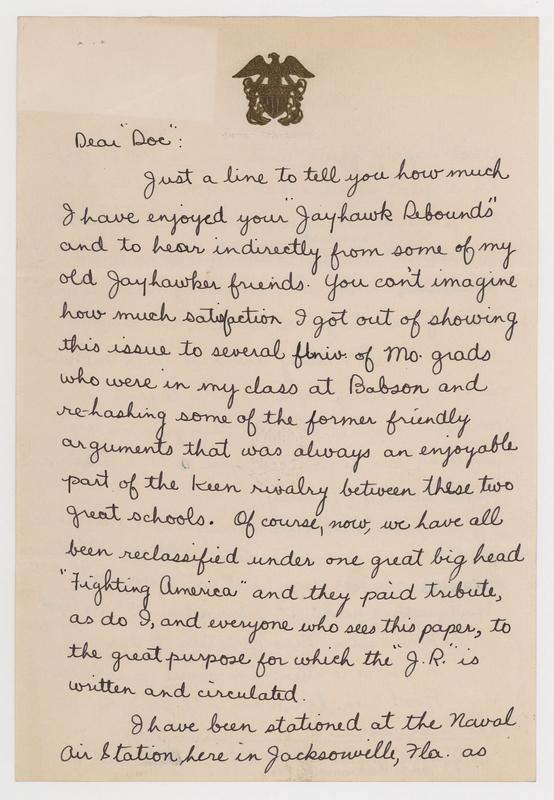 Dear "Doc":
Just a line to tell you how much
I have enjoyed your "Jayhawk Rebounds"
and to hear indirectly from some of my
old Jayhawker friends. You can't imagine
how much satisfaction I got out of showing
this issue to several Univ. of Mo. grads
who were in my class at Babson and
re-hashing some of the former friendly
arguments that was always an enjoyable
part of the keen rivalry between these two
great schools. Of course, now, we have all
been reclassified under one great big head
"Fighting America" and they paid tribute,
as do I, and everyone who sees this paper, to
the great purpose for which the "J.R." is
written and circulated.
I have been stationed at the Naval
Air Station, here in Jacksonville, Fla. as